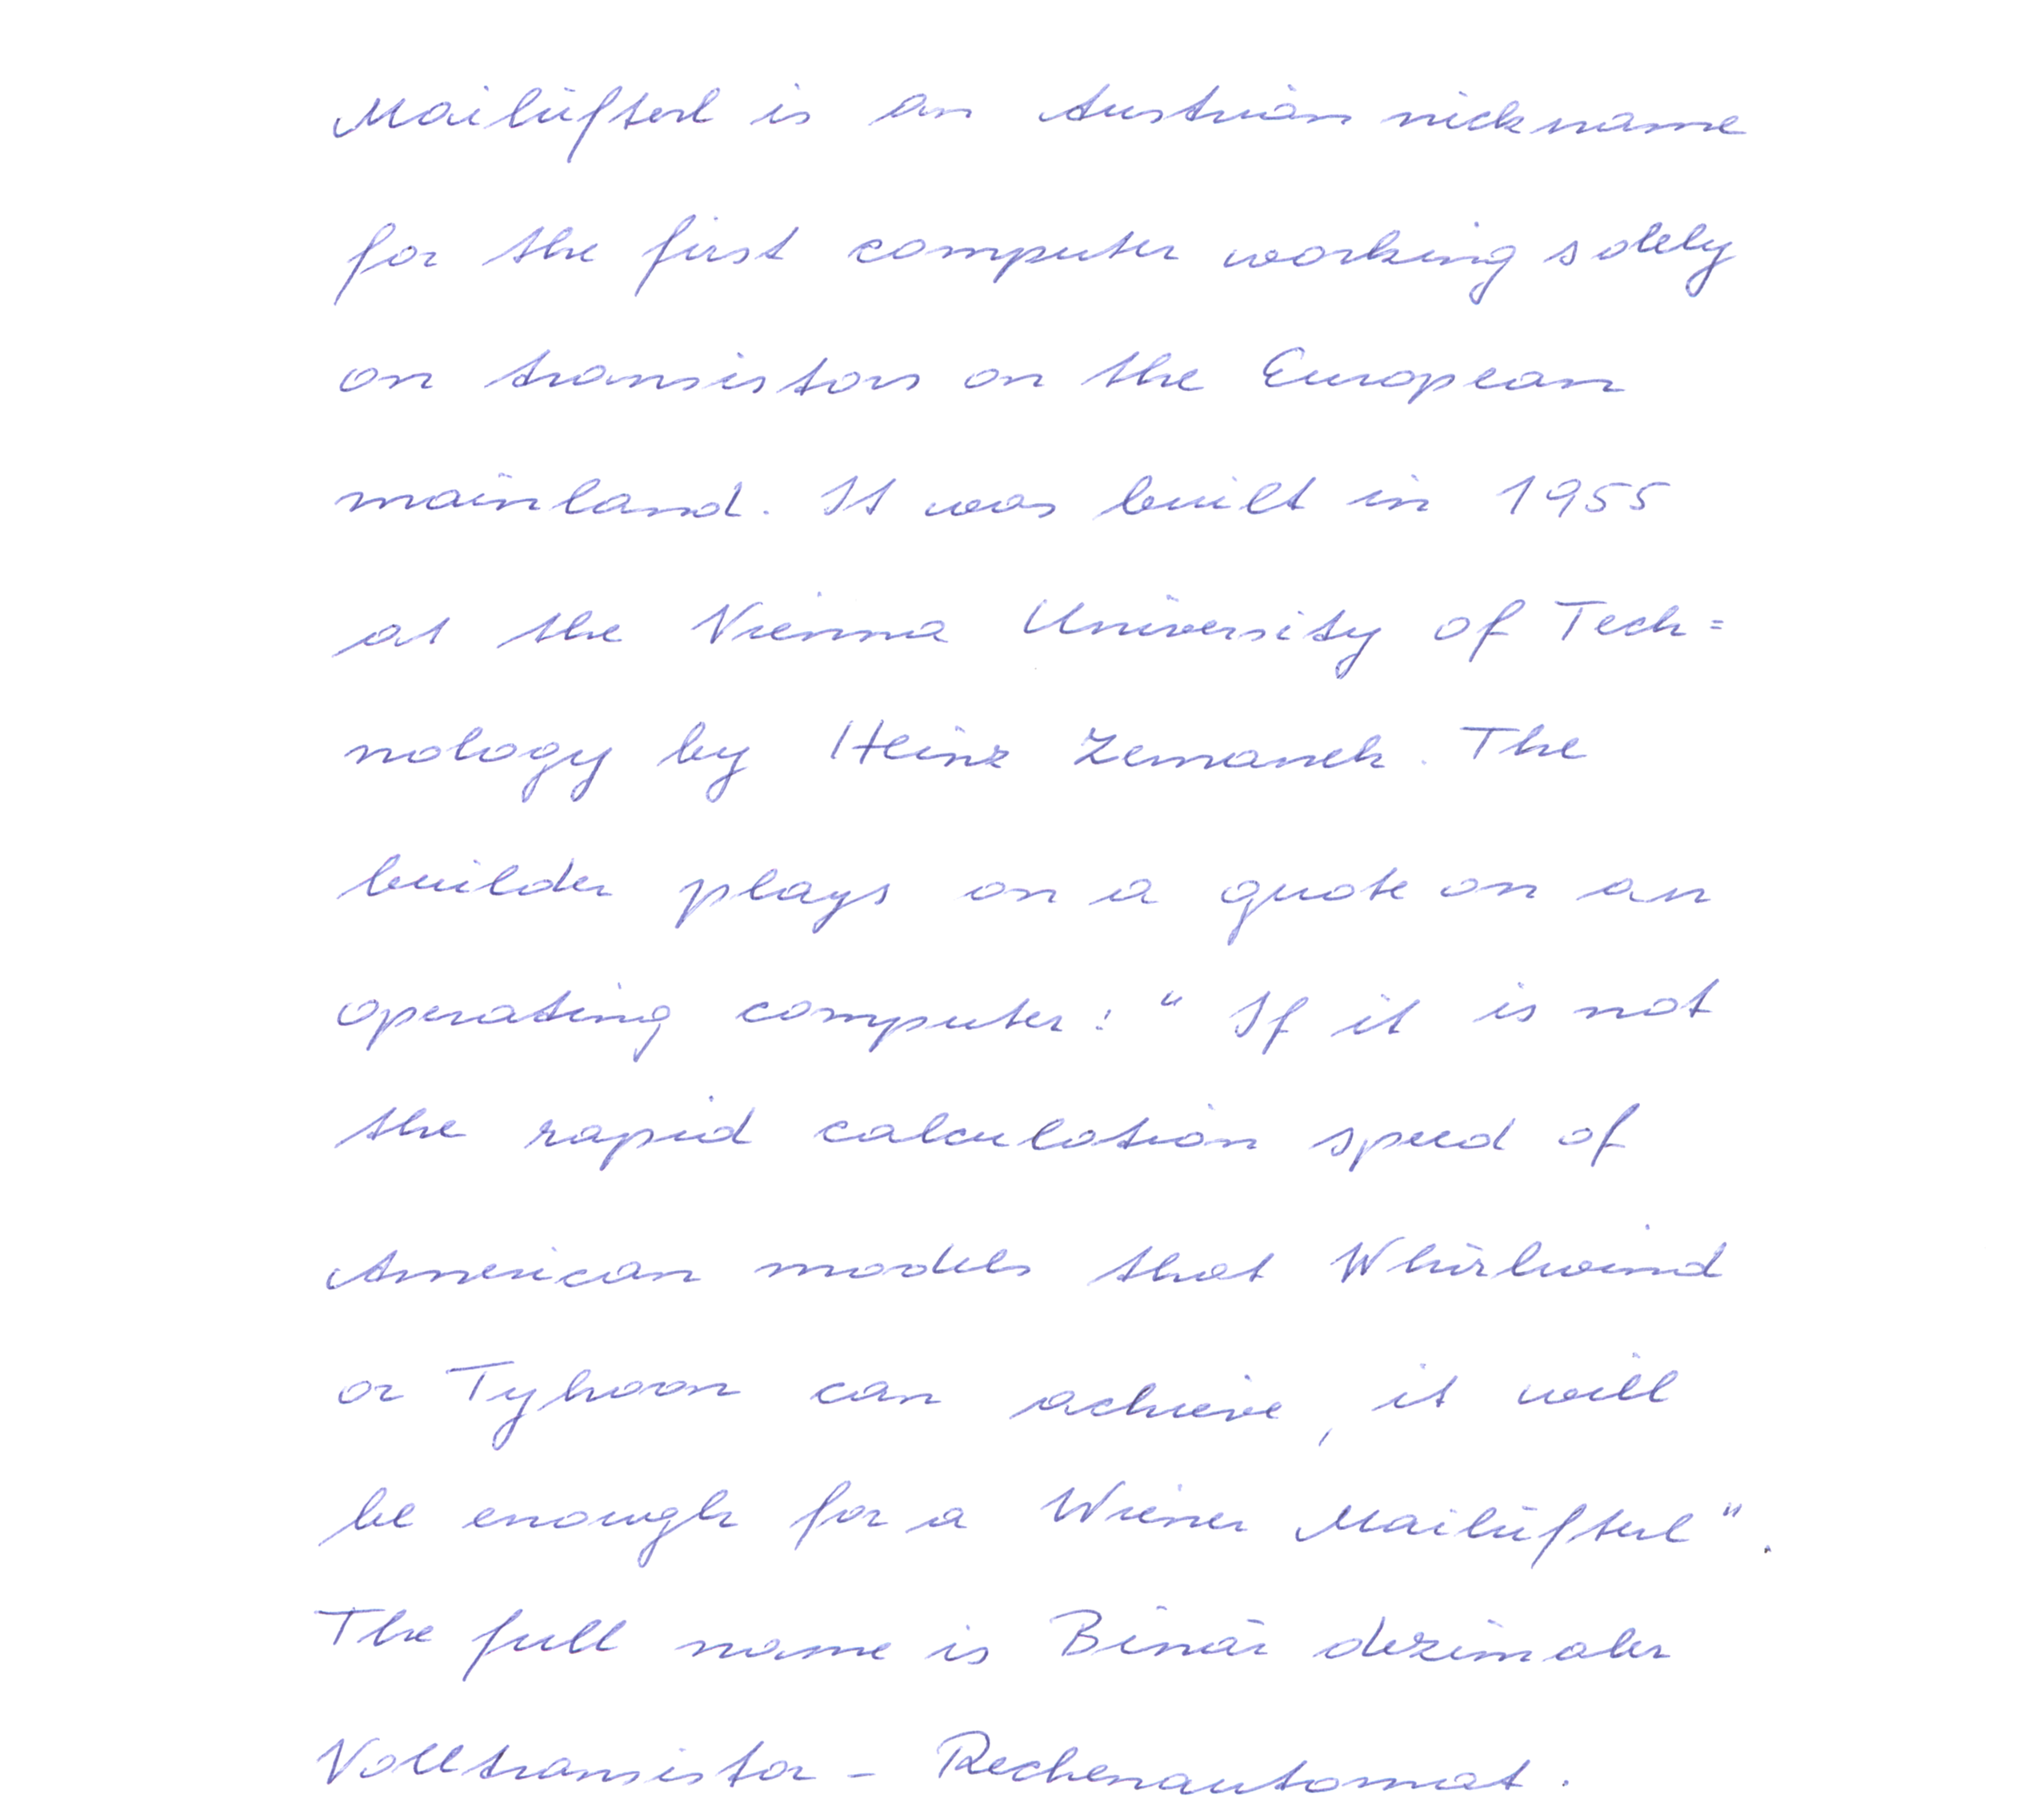 Mailüfterl is an Austrian nickname
for the first computer working solely
on transistors on the European
mainland. It was built in 1955
at the Vienna University of Tech=
nology by Heinz Zemanek. The
builder plays on a quote on an
operating computer: " If it is not
the rapid calculation speed of
American models that Whirlwind
or Tyhoon can achieve, it will
be enough for a Wiener Mailüfterl".
The full name is Binär dezimaler
Volltransistor - Rechenautomat.